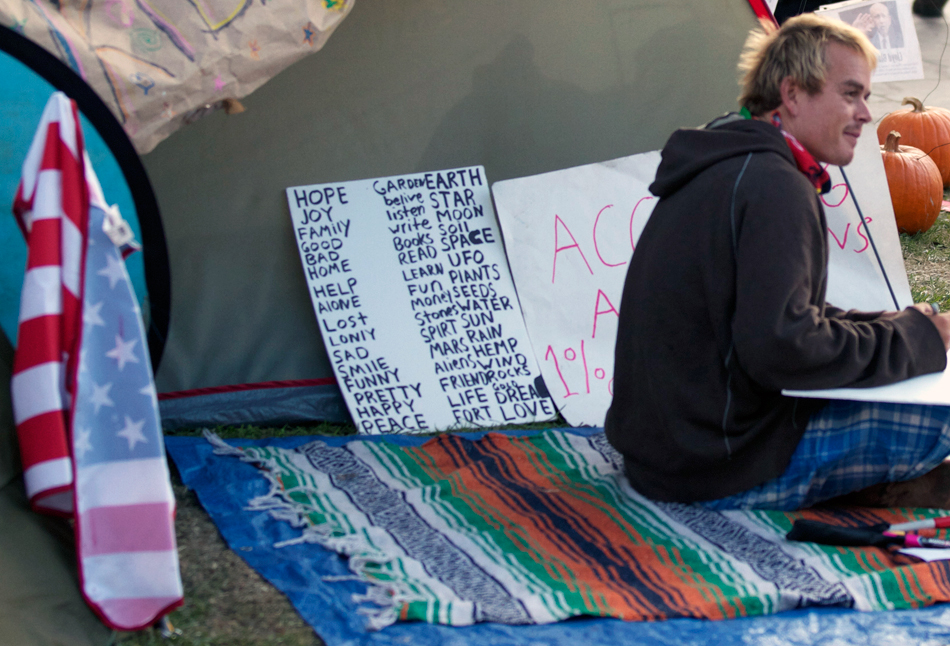 HOPE
JOY
FAMILY
GOOD
BAD
HOME
HELP
AlONE
LOST
LONlY
SAD
SMIlE
FUNNY
PRETTY
HAPPY
PEACE
GARDEN EARTH
belive STAR
listen MOON
write SOIL
BOOKS SPACE
READ UFO
LEARN PLANTS
FUN SEEDS
MONEY WATER
Stones SUN
SPIRT RAIN
MARS HEMP
AlIENS WIND
FRIEND ROCKS
LIFE GOLD DREA
FORT LOVE
ACC
A
1%